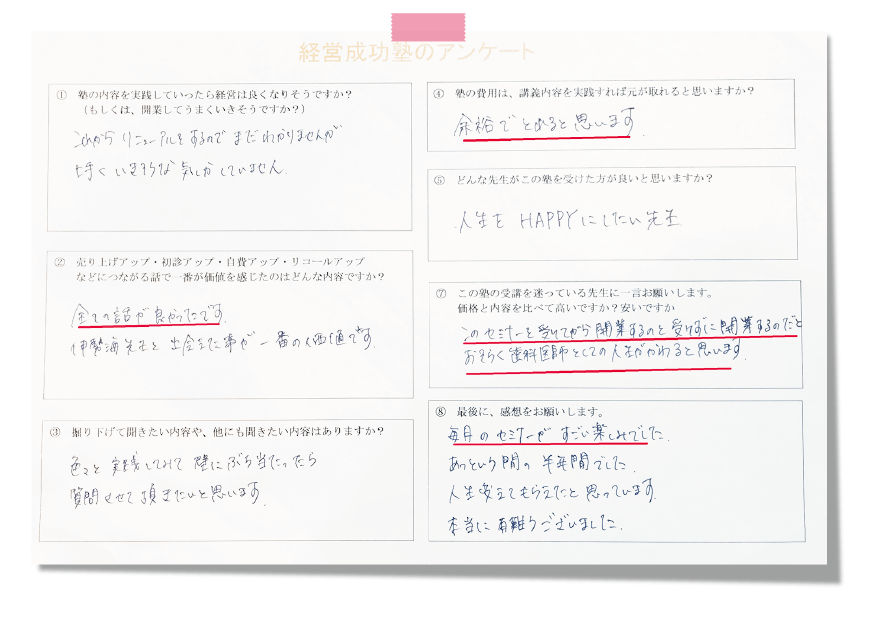 経営成功塾のアンケート
① 塾の内容を実践していったら経営は良くなりそうですか?
(もしくは、開業してうまくいきそうですか?)
これから リニューアルをするので まだ わかりませんが
上手く いきそうな 気しか していません.
② 売り上げアップ・初診アップ・自費アップ・リコールアップ
などにつながる話で一番が価値を感じたのはどんな内容ですか?
全ての話が 良かったです.
伊勢海先生と 出会えた事が 一番の価値です.
③ 掘り下げて聞きたい内容や、他にも聞きたい内容はありますか?
色々と 実践してみて 壁にぶち当たったら
質問させて頂きたいと思います.
④ 塾の費用は、講義内容を実践すれば元が取れると思いますか?
余裕で とれると 思います.
⑤ どんな先生がこの塾を受けた方が良いと思いますか?
人生を HAPPYにしたい先生
⑦ この塾の受講を迷っている先生に一言お願いします。
価格と内容を比べて高いですか?安いですか
このセミナーを受けてから開業するのと受けずに開業するのだと
おそらく歯科医師としての人生がかわると思います.
⑧ 最後に、感想をお願いします。
毎月のセミナーが すごい楽しみでした.
あっという間の 半年間でした.
人生変えてもらえたと思っています.
本当に有難うございました.